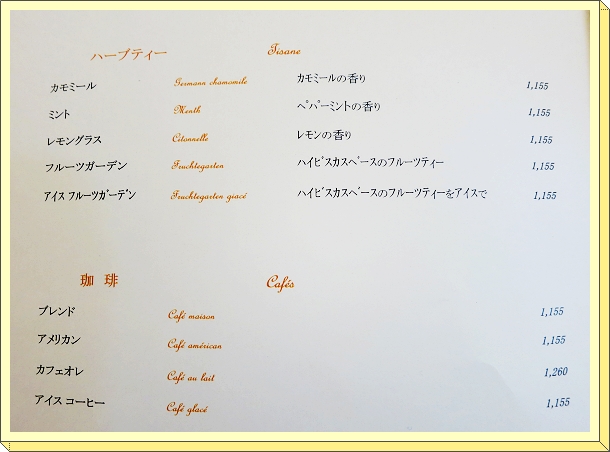 ハーブティー Tisane
カモミール Germann chamomile カモミールの香り 1,155
ミント Menth ペパーミントの香り 1,155
レモングラス Citonnelle レモンの香り 1,155
フルーツガーデン Fruchtegarten ハイビスカスベースのフルーツティー 1,155
アイス フルーツガーデン Fruchtegarten giacé ハイビスカスベースのフルーツティーをアイスで 1,155
珈 琲 Cafés
ブレンド Café maison 1,155
アメリカン Café américan 1,155
カフェオレ Café au lait 1,260
アイス コーヒー Café glacé 1,155